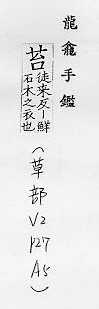 龍龕手鑑
苔徒来反鮮
石木之衣也
(草部
V2
P27
A5)